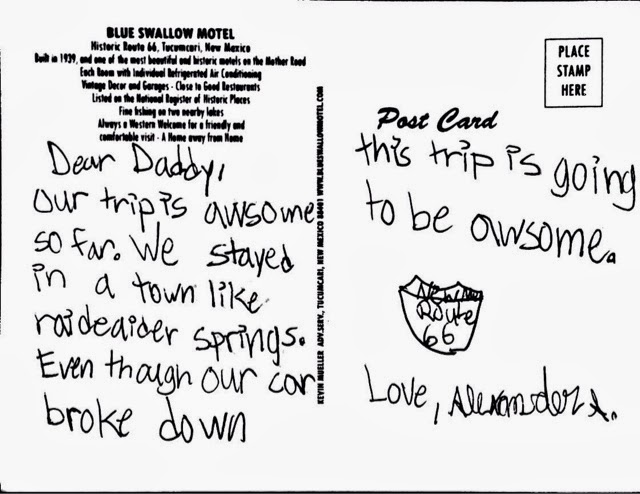 BLUE SWALLOW MOTEL
Historic Route 66, Tucumcari, New Mexico
Built in 1939, and one of the most beautiful and historic motels on the Mother Road
Each Room with Individual Refrigerated Air Conditioning
Vintage Decor and Garages - Close to Good Restaurants
Listed on the National Register of Historic Places
Fine fishing on two nearby lakes
Always a Western Welcome for a friendly and
comfortable visit - A Home away from Home
Dear Daddy,
Our trip is awsome
so far. We stayed
in a town like
raideaider springs.
Even though our car
broke down
KEVIN MUELLER ADV. SERV., TUCUMCARI, NEW MEXICO 88401 WWW.BLUESWALLOWMOTEL.COM
PLACE
STAMP
HERE
Post Card
this trip is going
to be awsome.
Route
66
Love, Alexander A.